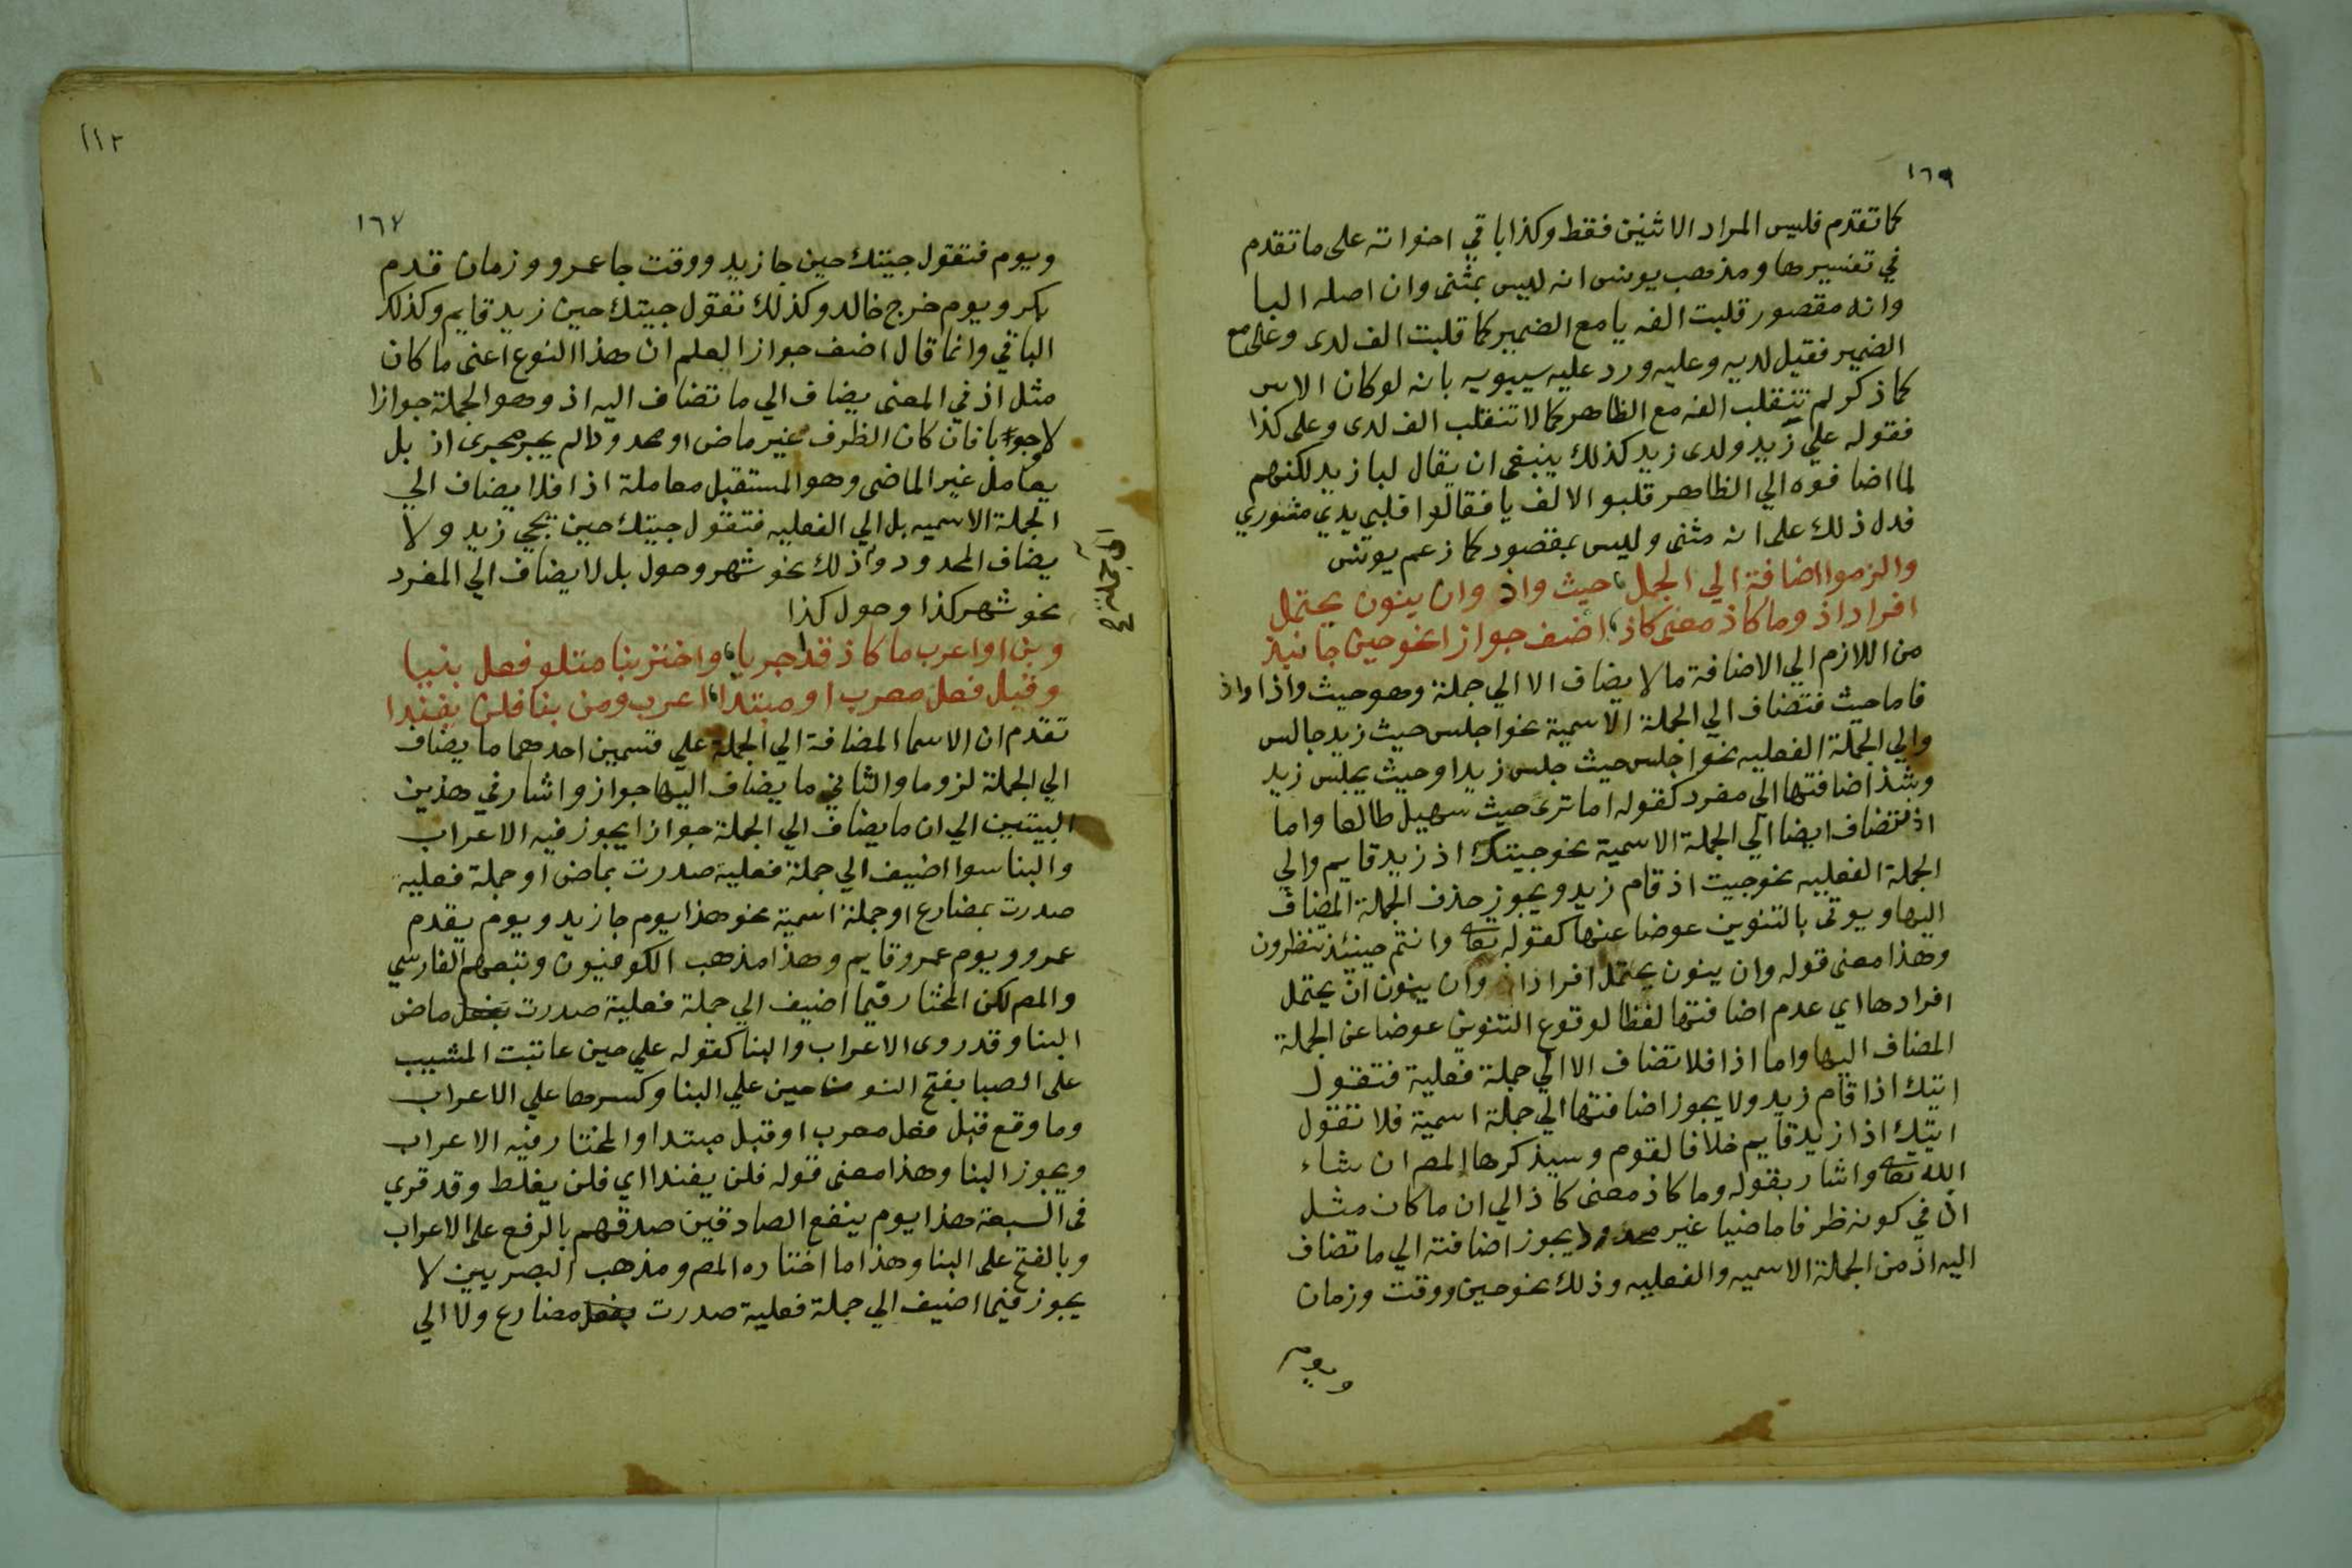 ١٦٩
كما تقدم فليس المراد الاثنين فقط وكذا باقي اخواته على ما تقدم
في تفسيرها ومذهب يونس انه ليس بمثنى وان اصله البا
وانه مقصور قلبت الفه يا مع الضمير كما قلبت الف لدى وعلى مع
الضمير فقيل لديه وعليه ورد عليه سيبويه بانه لو كان الامر
كما ذكر لم تنقلب الفه مع الظاهر كما لا تنقلب الف لدى وعلى كذا
فقوله علي زيد ولدى زيد كذلك ينبغى ان يقال لبا زيد لكنهم
لما اضافوه الي الظاهر قلبو الالف يا فقالوا فلبي يدي مسوري
فدل ذلك على انه مثنى وليس بمقصور كما زعم يونس
والزموا اضافة الي الجمل، حيث واذ وان ينون يحتمل
افراد اذ وما كاذ معنى كاذ، اضف جوازا نحو حين جا نبذ
من اللازم الي الاضافة ما لا يضاف الا الي جملة وهو حيث واذا واذ
فاما حيث فتضاف الي الجملة الاسمية نحو اجلس حيث زيد جالس
والي الجملة الفعليه نحو اجلس حيث جلس زيد او حيث يجلس زيد
وشذ اضافتها الي مفرد كقوله اما ترى حيث سهيل طالعا واما
اذ فتضاف ايضا الي الجملة الاسمية نحو جيتك اذ زيد قايم والي
الجملة الفعليه نحو جيت اذ قام زيد ويجوز حذف الجملة المضاف
اليها ويوتى بالتنوين عوضا عنها كقوله تعا وانتم حينئذ تنظرون
وهذا معنى قوله وان ينون يحتمل افراد اذ وان ينون اذ يحتمل
افرادها اي عدم اضافتها لفظا لوقوع التنوين عوضا عن الجملة
المضاف اليها واما اذا فلا تضاف الا الي جملة فعلية فتقول
اتيك اذا قام زيد ولا يجوز اضافتها الي جملة اسمية فلا تقول
اتيك اذا زيد قايم خلافا لقوم وسيذكرها المص ان شاء
الله تعا واشار بقوله وما كاذ معنى كاذ الي ان ما كان مثل
اذ في كونه ظرفا ماضيا غير محدود يجوز اضافته الي ما تضاف
اليه اذ من الجملة الاسميه والفعليه وذلك نحو حين ووقت وزمان
ويوم
١١٢
١٦٧
ويوم فتقول جيتك حين جا زيد ووقت جا عمرو وزمان قدم
بكر ويوم خرج خالد وكذلك تقول جيتك حين زيد قايم وكذلك
الباقي وانما قال اضف جوازا ليعلم ان هذا النوع اعنى ما كان
مثل اذ في المعنى يضاف الي ما تضاف اليه اذ وهو الجملة جوازا
لا وجوبا فان كان الظرف غير ماض او محدودا لم يجر مجرى اذ بل
يعامل غير الماضى وهو المستقبل معاملة اذا فلا يضاف الي
الجملة الاسميه بل الي الفعليه فتقول جيتك حين يجي زيد ولا
يضاف المحدود وذلك نحو شهر وحول بل لا يضاف الي المفرد
نحو شهر كذا وحول كذا
وبن او اعرب ما كاذ قد اجريا، واختر بنا متلو فعل بنيا
وقبل فعل معرب او مبتدا، اعرب ومن بنا فلن يفندا
تقدم ان الاسما المضافة الي الجملة علي قسمين احدهما ما يضاف
الي الجملة لزوما والثاني ما يضاف اليها جواز واشار في هذين
البيتين الي ان ما يضاف الي الجملة جوازا يجوز فيه الاعراب
والبنا سوا اضيف الي جملة فعلية صدرت بماض او جملة فعليه
صدرت بمضارع او جملة اسمية نحو هذا يوم جا زيد ويوم يقدم
عمرو ويوم عمرو قايم وهذا مذهب الكوفيون وتبعهم الفارسي
والمص لكن المختار فيما اضيف الي جملة فعلية صدرت بفعل ماض
البنا وقد روى الاعراب والبنا كقوله علي حين عاتبت المشيب
على الصبا بفتح النون حين علي البنا وكسرها علي الاعراب
وما وقع قبل فعل معرب او قبل مبتدا والمختار فيه الاعراب
ويجوز البنا وهذا معنى قوله فلن يفندا اي فلن يغلط وقد قري
فى السبعة هذا يوم ينفع الصادقين صدقهم بالرفع على الاعراب
وبالفتح على البنا وهذا ما اختاره المص ومذهب البصريين لا
يجوز فيما اضيف الي جملة فعلية صدرت بفعل مضارع ولا الي